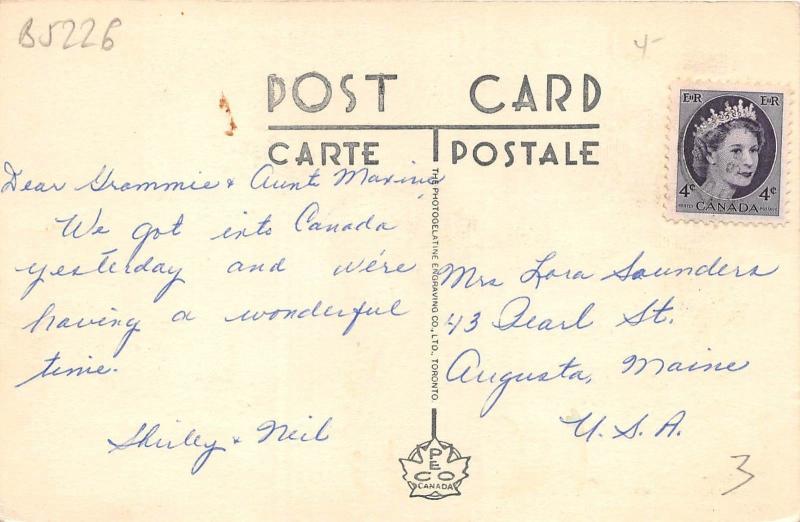 B5226
4-
POST CARD
CARTE POSTALE
EIIR EIIR
4¢ 4¢
POSTES POSTAGE
CANADA
Dear Grammie & Aunt Maxine,
We got into Canada
yesterday and we're
having a wonderful
time.
Shirley & Neil
THE PHOTOGELATINE ENGRAVING CO., LTD., TORONTO.
Mrs Lora Saunders
43 Pearl St.
Augusta, Maine
U.S.A.
PECO
CANADA
3